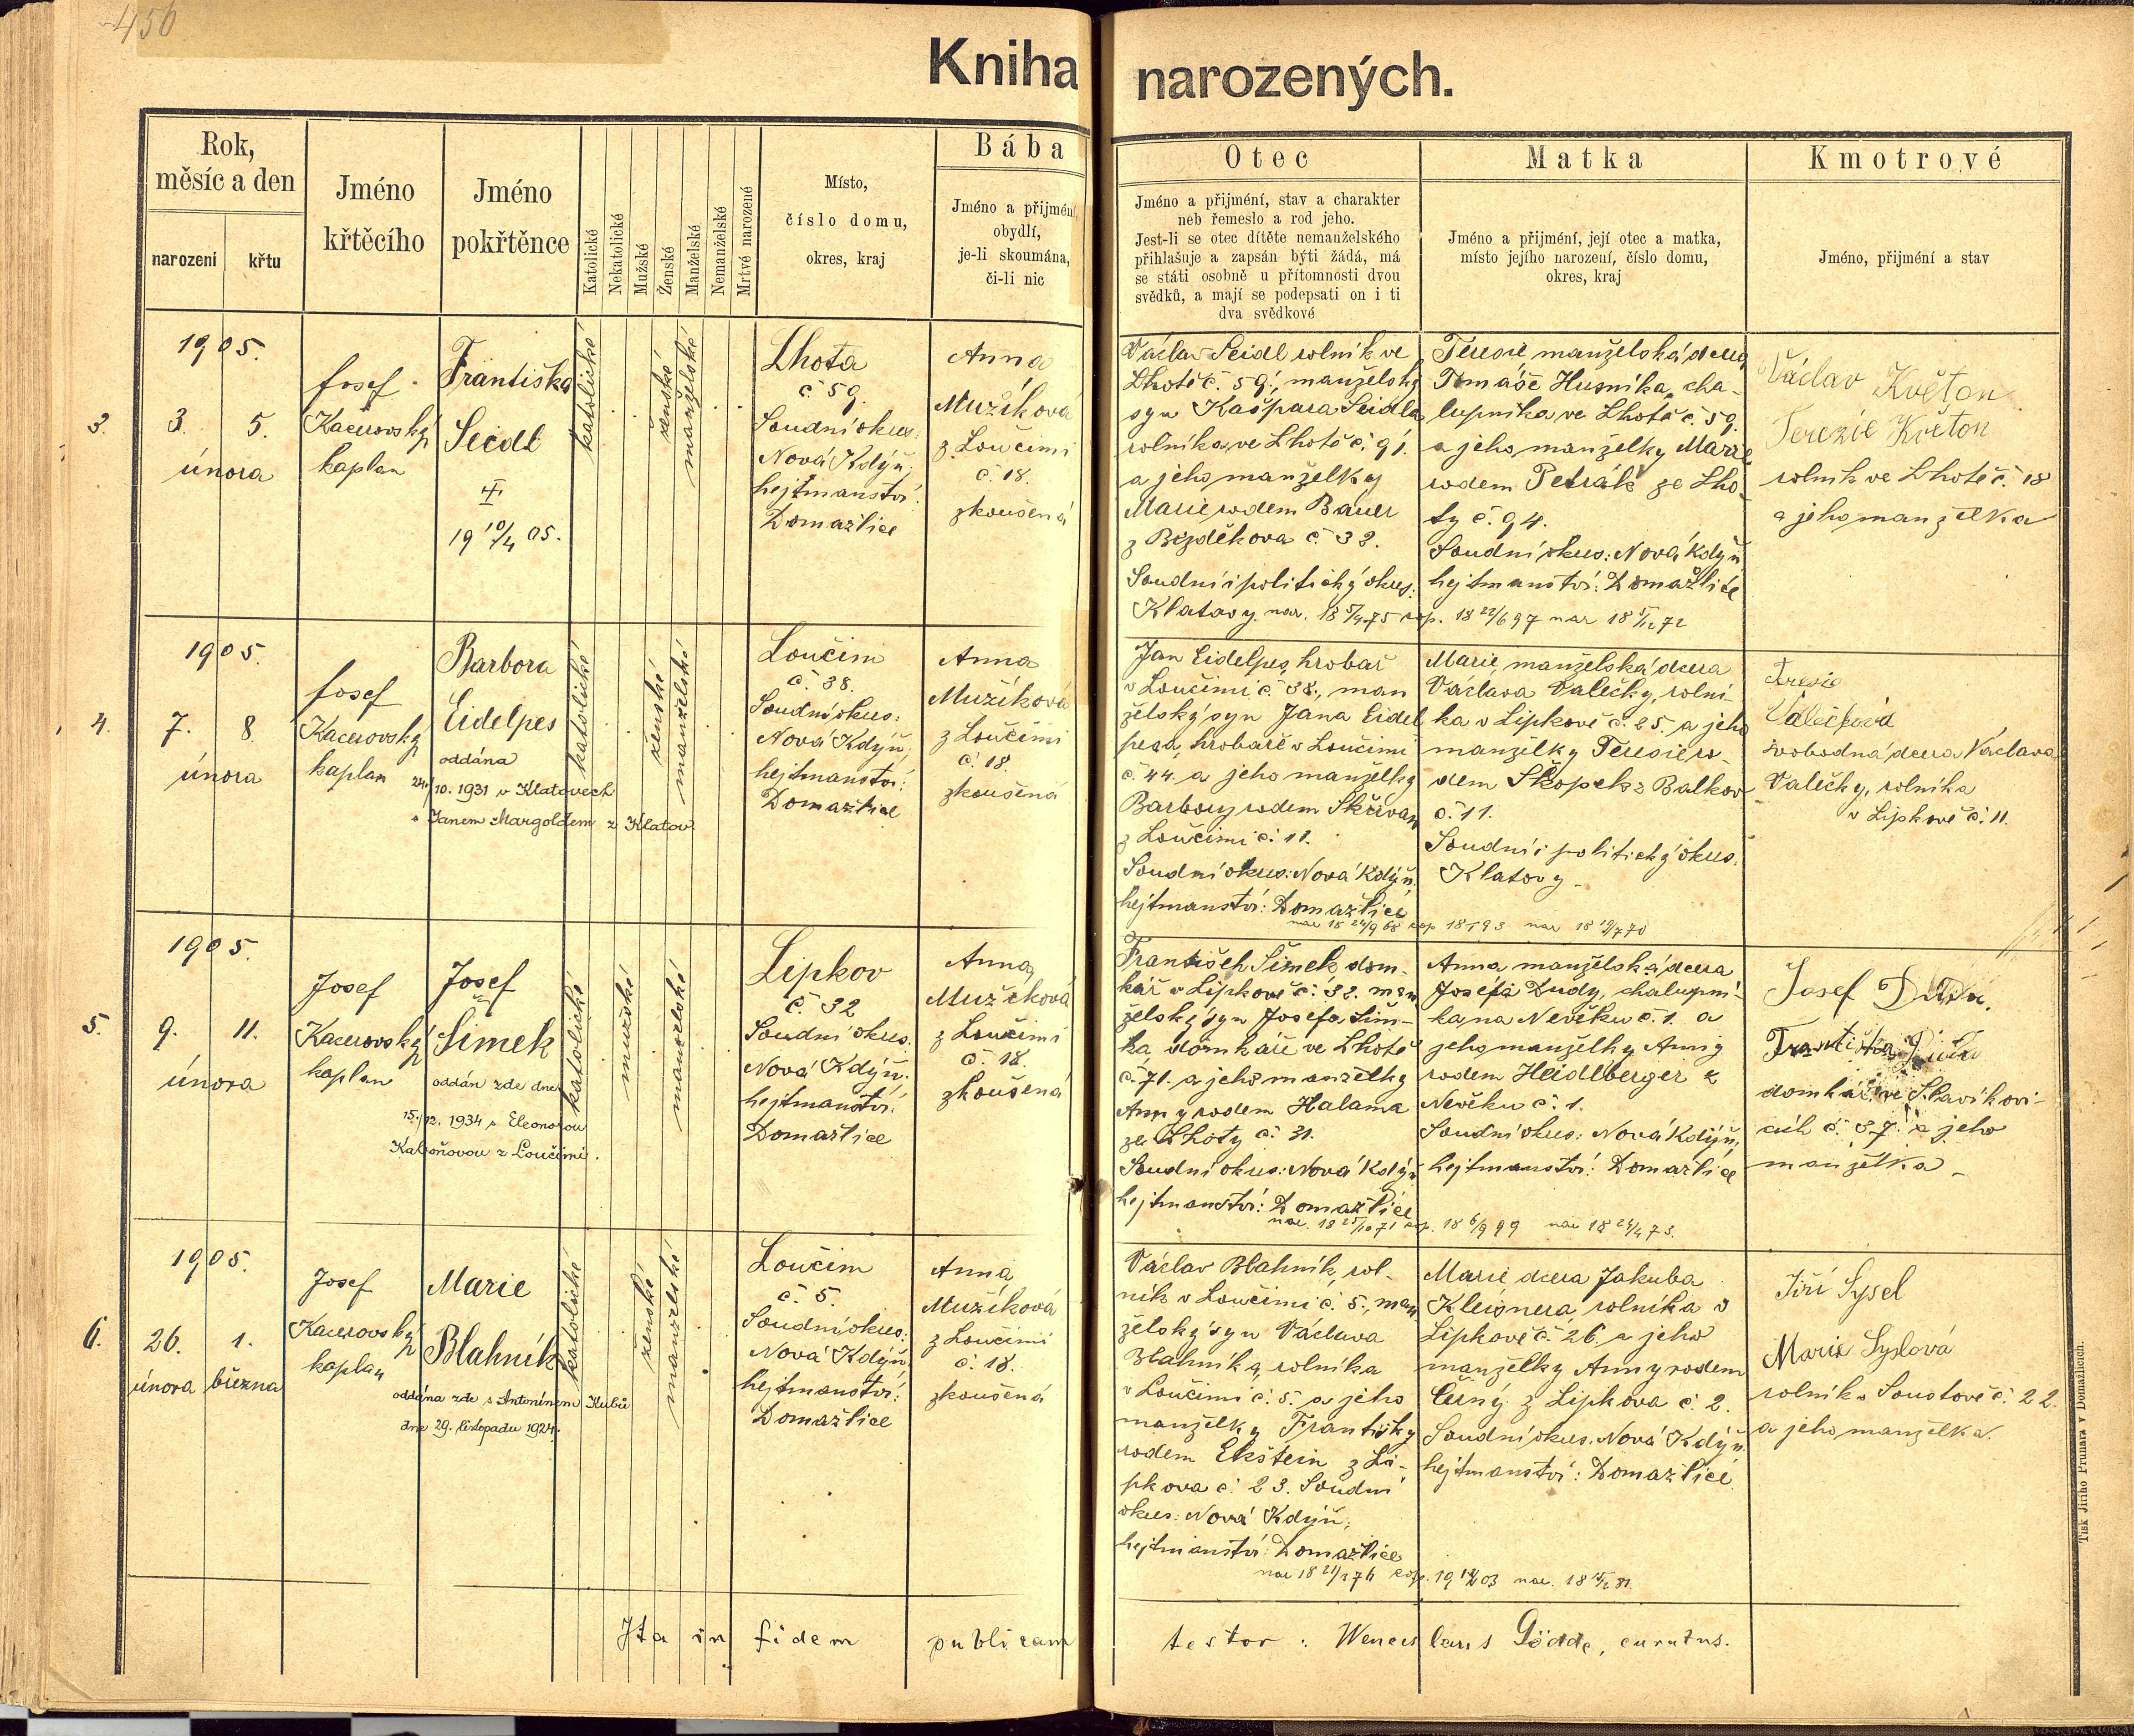 456
Kniha narozených.
Rok,
měsíc a den
narození
křtu
Jméno
křtěcího
Jméno
pokřtěnce
Katolické
Nekatolické
Mužské
Ženské
Manželské
Nemanželské
Mrtvé narozené
Místo,
číslo domu,
okres, kraj
Bába
Jméno a přijmení,
obydlí,
je-li skoumána,
či-li nic
Otec
Jméno a přijmení, stav a charakter
neb řemeslo a rod jeho.
Jest-li se otec dítěte nemanželského
přihlašuje a zapsán býti žádá, má
se státi osobně u přítomnosti dvou
svědků, a mají se podepsati on i ti
dva svědkové
Matka
Jméno a přijmení, její otec a matka,
místo jejího narození, číslo domu,
okres, kraj
Kmotrové
Jméno, přijmení a stav
3.
1905.
3. 5.
února
Josef
Kacerovský
kaplan
Františka
Seidl
19 10/4 05.
katolické
ženské
manželské
Lhota
č. 59.
Soudní okres:
Nová Kdýň,
hejtmanství:
Domažlice
Anna
Mužíková
z Loučimi
č. 18.
zkoušená
Václav Seidl rolník ve
Lhotě č. 59., manželský
syn Kašpara Seidla
rolníka ve Lhotě č. 91.
a jeho manželky
Marie rodem Bauer
z Bezděkova č. 32.
Soudní i politický okres:
Klatovy. nar. 18 5/4 75 cop. 18 22/6 97 nar 18 5/12 72
Terezie manželská dcera
Tomáše Husníka, cha-
lupníka ve Lhotě č. 59.
a jeho manželky Marie
rodem Petrák ze Lho-
ty č. 94.
Soudní okres: Nová Kdýň
hejtmanství: Domažlice
Václav Květon
Terezie Květon
rolník ve Lhotě č. 18
a jeho manželka
4.
1905.
7. 8.
února
Josef
Kacerovský
kaplan
Barbora
Eidelpes
oddána
24./10. 1931 v Klatovech
s Janem Margoldem z Klatov.
katolické
ženské
manželské
Loučim
č. 38.
Soudní okres:
Nová Kdýň,
hejtmanství:
Domažlice
Anna
Mužíková
z Loučimi
č. 18.
zkoušená
Jan Eidelpes, hrobař
v Loučimi č. 38., man
želský syn Jana Eidel
pesa, hrobaře v Loučimi
č. 44. a jeho manželky
Barbory rodem Skřivan
z Loučimi č. 11.
Soudní okres: Nová Kdýň.
hejtmanství: Domažlice
nar 18 24/9 68 cop 18 93 nar 18 19/7 70
Marie, manželská dcera
Václava Valečky, rolní-
ka v Lipkově č. 25. a jeho
manželky Terezie ro-
dem Skopek z Balkov
č. 11.
Soudní i politický okres.
Klatovy.
Valečková
svobodná dcera Václava
Valečky, rolníka
v Lipkově č. 11.
5.
1905.
9. 11.
února
Josef
Kacerovský
kaplan
Josef
Šimek
oddán zde dne
15./12. 1934 s Eleonorou
Kaboňovou z Loučimi.
katolické
mužské
manželské
Lipkov
č. 32
Soudní okres.
Nová Kdýň.
hejtmanství:
Domažlice
Anna
Mužíková
z Loučimi
č. 18.
zkoušená
František Šimek dom-
kář v Lipkově č. 32. man
želský syn Josefa Šim-
ka, domkáře ve Lhotě
č. 71. a jeho manželky
Anny rodem Halama
ze Lhoty č. 31.
Soudní okres: Nová Kdýň
hejtmanství: Domažlice
nar. 18 25/10 71 cop. 18 6/9 99 nar 18 24/4 73.
Anna manželská dcera
Josefa Dudy, chalupní-
ka, na Nevěku č. 1. a
jeho manželky Anny
rodem Heidlberger z
Nevěku č. 1.
Soudní okres: Nová Kdýň,
hejtmanství: Domažlice
Josef Duda.
Františka Duda
domkář ve Slavíkovi-
cích č. 37. a jeho
manželka
6.
1905.
26. 1.
února března
Josef
Kacerovský
kaplan
Marie
Blahník
oddána zde s Antonínem Kubů
dne 29. listopadu 1924.
katolické
ženské
manželské
Loučim
č. 5.
Soudní okres:
Nová Kdýň,
hejtmanství:
Domažlice
Anna
Mužíková
z Loučimi
č. 18.
zkoušená
Václav Blahník, rol-
ník v Loučimi č. 5., man
želský syn Václava
Blahníka, rolníka
v Loučimi č. 5. a jeho
manželky Františky
rodem Ekštein z Li-
pkova č. 23. Soudní
okres: Nová Kdýň,
hejtmanství: Domažlice
nar 18 21/2 76 cop. 19 03 nar. 18 15/2 81.
Marie dcera Jakuba
Kleignera rolníka v
Lipkově č. 26. a jeho
manželky Anny rodem
Černý z Lipkova č. 2.
Soudní okres. Nová Kdýň
hejtmanství: Domažlice
Jiří Sysel
Marie Syslová
rolník v Soustově č. 22.
a jeho manželka.
Ita in fidem publicam testor: Wenceslaus Gödde, curatus.
Tisk Jiřího Prunara v Domažlicích.